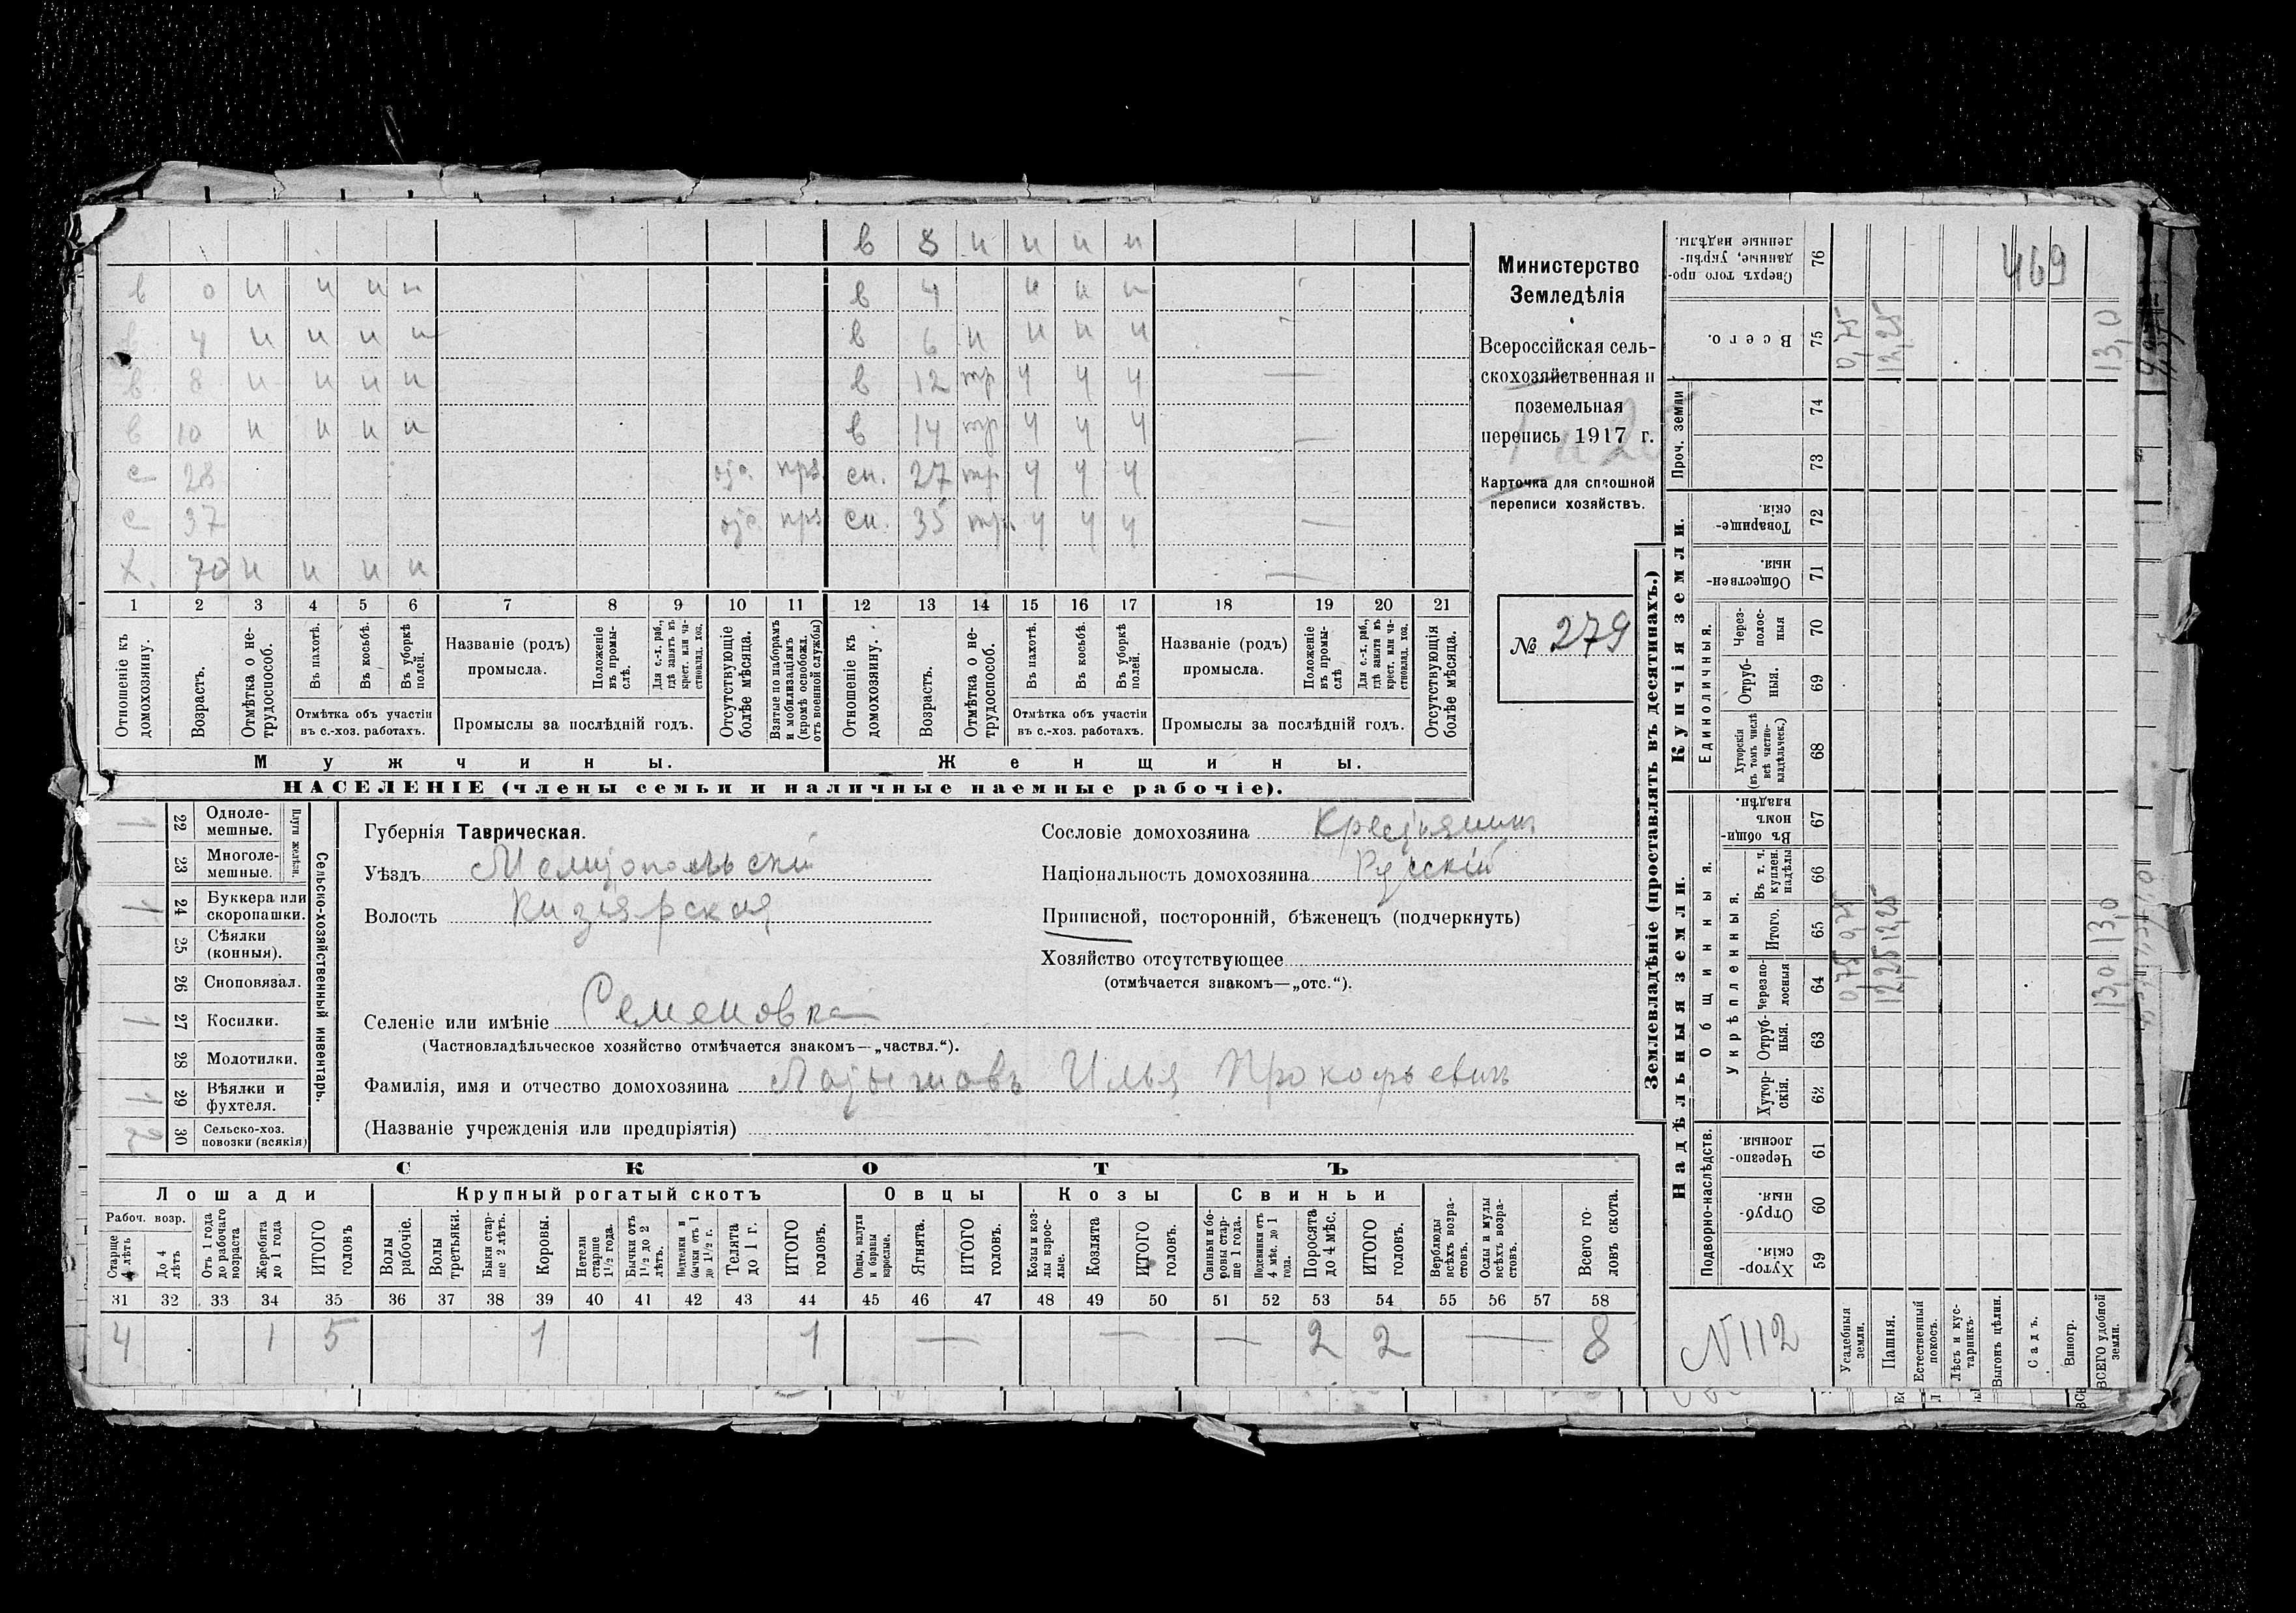 в 8 н н н н
в 0 н н н н в 4 н н н
в 4 н н н н в 6 н н н н
в 8 н н н н в 12 тр ч ч ч —
в 10 н н н н в 14 тр ч ч ч —
с 28 отс. прз сн. 27 тр ч ч ч
с 37 отс. прз сн. 35 тр. ч ч ч —
х. 70 н н н н —
1 2 3 4 5 6 7 8 9 10 11 12 13 14 15 16 17 18 19 20 21
Отношеніе къ домохозяину.
Возрастъ.
Отмѣтка о не-трудоспособ.
Въ пахотѣ.
Въ косьбѣ.
Въ уборкѣ полей.
Отмѣтка объ участіи
въ с.-хоз. работахъ.
Названіе (родъ)
промысла.
Положеніе въ промы-слѣ.
Для с.-х. раб., гдѣ занятъ въ крест. или ча-стновлад. хоз.
Промыслы за послѣдній годъ.
Отсутствующіе болѣе мѣсяца.
Взятые по наборамъ и мобилизаціямъ (кромѣ освобожд. отъ военной службы)
Отношеніе къ домохозяину.
Возрастъ.
Отмѣтка о не-трудоспособ.
Въ пахотѣ.
Въ косьбѣ.
Въ уборкѣ полей.
Отмѣтка объ участіи
въ с.-хоз. работахъ.
Названіе (родъ)
промысла.
Положеніе въ промы-слѣ
Для с.-х. раб., гдѣ занята въ крест. или ча-стновлад. хоз.
Промыслы за послѣдній годъ.
Отсутствующія болѣе мѣсяца.
Мужчины. Женщины.
НАСЕЛЕНІЕ (члены семьи и наличные наемные рабочіе).
Министерство
Земледѣлія
Всероссійская сель-
скохозяйственная и
поземельная
перепись 1917 г.
Карточка для сплошной
переписи хозяйствъ.
№ 279
Сельско-хозяйственный инвентарь.
Плуги желѣзн.
1 22 Одноле-мешные.
23 Многоле-мешные.
1 24 Буккера или скоропашки.
25 Сѣялки (конныя).
26 Сноповязал.
1 27 Косилки.
28 Молотилки.
1 29 Вѣялки и фухтеля.
2 30 Сельско-хоз. повозки (всякія)
Губернія Таврическая.
Уѣздъ Мелитопольскій
Волость Кизіярская
Сословіе домохозяина Крестьянинъ
Національность домохозяина Русскій
Приписной, посторонній, бѣженецъ (подчеркнуть)
Хозяйство отсутствующее
(отмѣчается знакомъ—„отс.“).
Селеніе или имѣніе Семеновка
(Частновладѣльческое хозяйство отмѣчается знакомъ—„частвл.“).
Фамилія, имя и отчество домохозяина Латышовъ Илья Прокофьевичъ
(Названіе учрежденія или предпріятія)
СКОТЪ
Лошади Крупный рогатый скотъ Овцы Козы Свиньи
Рабоч. возр.
Старше 4 лѣтъ
До 4 лѣтъ
Отъ 1 года до рабочаго возраста
Жеребята до 1 года
ИТОГО головъ
Волы рабочіе.
Волы третьяки.
Быки стар-ше 2 лѣтъ.
Коровы.
Нетели старше 1½ года.
Бычки отъ 1½ до 2 лѣтъ.
Подтелки и бычки отъ 1 до 1½ г.
Телята до 1 г.
ИТОГО головъ.
Овцы, валухи и бараны взрослые.
Ягнята.
ИТОГО головъ.
Козы и коз-лы взрос-лые.
Козлята
ИТОГО головъ.
Свиньи и бо-ровы стар-ше 1 года.
Подсвинки отъ 4 мѣс. до 1 года.
Поросята до 4 мѣс.
ИТОГО головъ.
Верблюды всѣхъ возра-стовъ.
Ослы и мулы всѣхъ возра-стовъ.
Всего го-ловъ скота.
31 32 33 34 35 36 37 38 39 40 41 42 43 44 45 46 47 48 49 50 51 52 53 54 55 56 57 58
4 1 5 1 1 — — — 2 2 — 8
Землевладѣніе (проставлять въ десятинахъ.)
Надѣльныя земли. Купчія земли. Проч. земли
Подворно-наслѣдств.
Общинныя.
Укрѣпленныя.
Единоличныя.
Хутор-скія. 59
Отруб-ныя. 60
Черезпо-лосныя. 61
Хутор-скія. 62
Отруб-ныя. 63
Черезпо-лосныя 64
Итого. 65
Въ т. ч. куплен. надѣлы 66
Въ общи-номъ владѣн. 67
Хуторскія (въ томъ числѣ всѣ частно-владѣльческ.) 68
Отруб-ныя. 69
Через-полос-ныя 70
Обществен-ныя. 71
Товарище-скія. 72
73
74
Всего. 75
Сверхъ того про-данные, укрѣп-ленные надѣлы. 76
Усадебныя земли. 0,75 0,75 0,75
Пашня. 12,25 12,25 12,25
Естественный покосъ.
Лѣсъ и кус-тарникъ.
Выгонъ цѣлин.
Садъ.
Виногр.
ВСЕГО удобной земли. 13,0 13,0 13,0
469
N 112